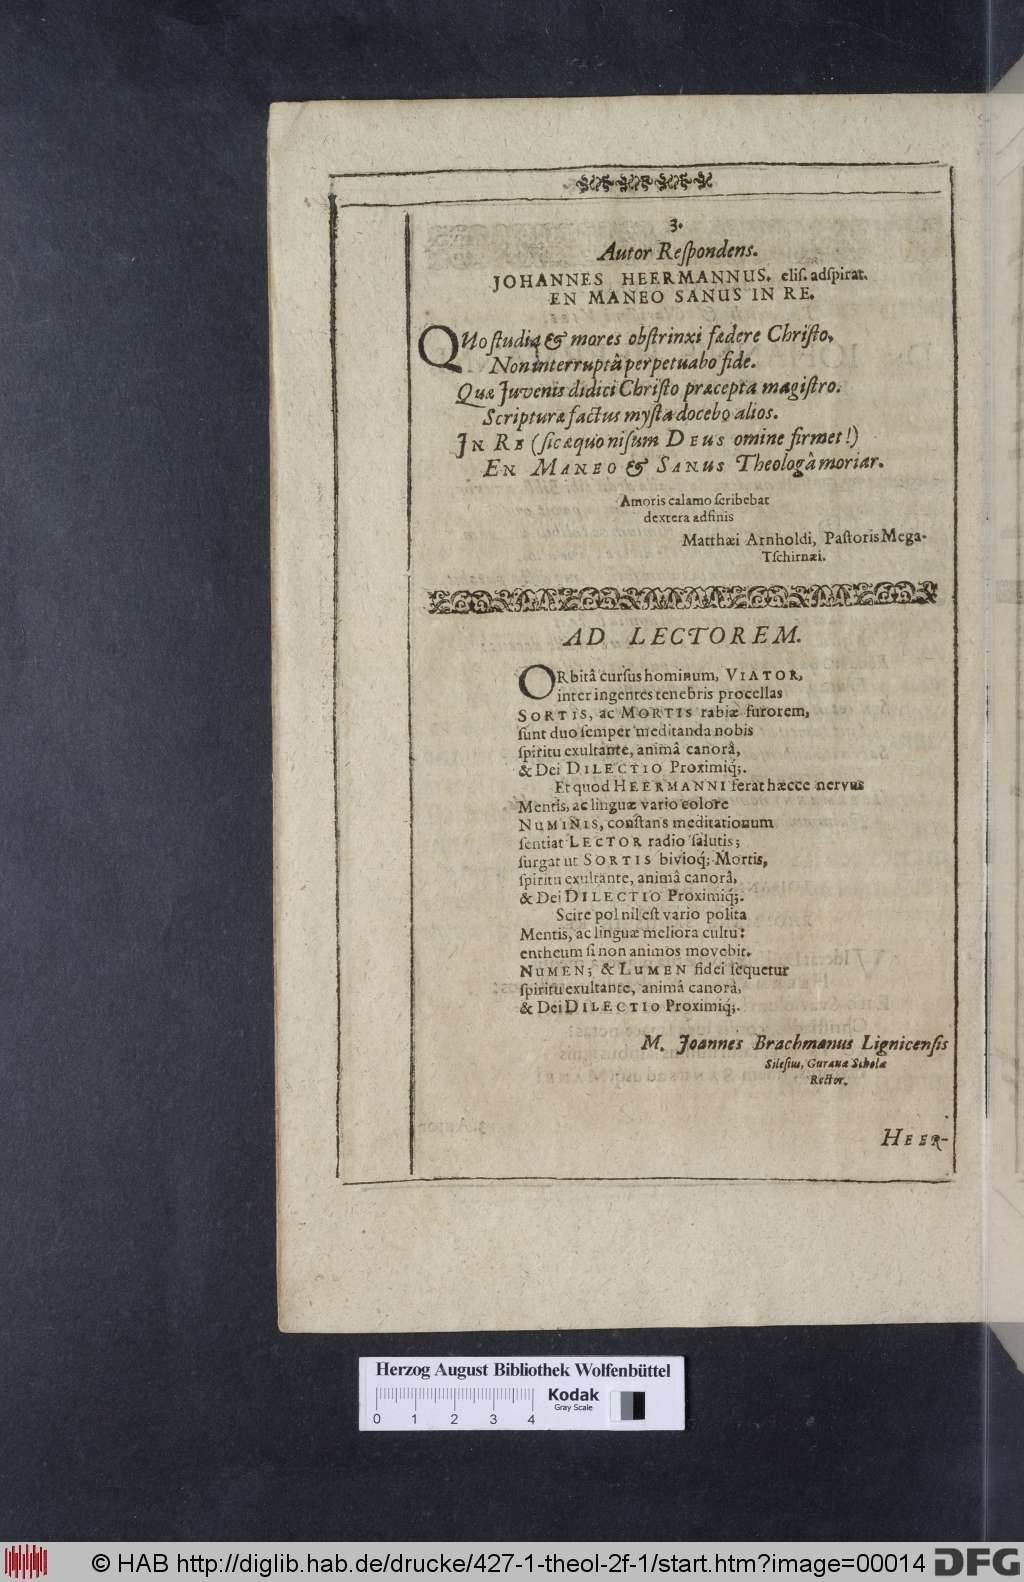 3.
Autor Reſpondens.
JOHANNES HEERMANNUS. eliſ. adſpirat.
EN MANEO SANUS IN RE.
QUo ſtudia & mores obſtrinxi fædere Chriſto,
Non interruptâ perpetuabo fide.
Quæ Juvenis didici Chriſto præcepta magiſtro.
Scripturæ factus myſta docebo alios.
IN RE (ſic æquo niſum DEUS omine firmet!)
EN MANEO & SANUS Theologâ moriar.
Amoris calamo ſcribebat
dextera adfinis
Matthæi Arnholdi, Paſtoris Mega-
Tſchirnæi.
AD LECTOREM.
ORbitâ curſus hominum, VIATOR,
inter ingentes tenebris procellas
SORTIS, ac MORTIS rabiæ furorem,
ſunt duo ſemper meditanda nobis
ſpiritu exultante, animâ canorâ,
& Dei DILECTIO Proximiq́;.
Et quod HEERMANNI ferat hæcce nervus
Mentis, ac linguæ vario colore
NUMINIS, conſtans meditationum
ſentiat LECTOR radio ſalutis;
ſurgat ut SORTIS bivioq́; Mortis,
ſpiritu exultante, animâ canorâ,
& Dei DILECTIO Proximiq́;.
Scire pol nil eſt vario polita
Mentis, ac linguæ meliora cultu:
entheum ſi non animos movebit.
NUMEN; & LUMEN fidei ſequetur
ſpiritu exultante, animâ canorâ,
& Dei DILECTIO Proximiq́;.
M. Joannes Brachmanus Lignicenſis
Sileſius, Guranæ Scholæ
Rector.
HEER-
Herzog August Bibliothek Wolfenbüttel
0 1 2 3 4
Kodak
Gray Scale
© HAB http://diglib.hab.de/drucke/427-1-theol-2f-1/start.htm?image=00014
DFG